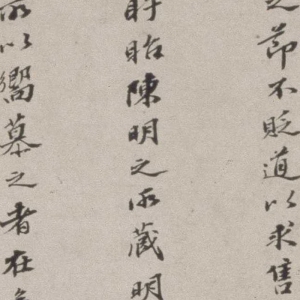 之節不貶道以求售
盱眙陳明之所蔵明
所以嚮慕之者在